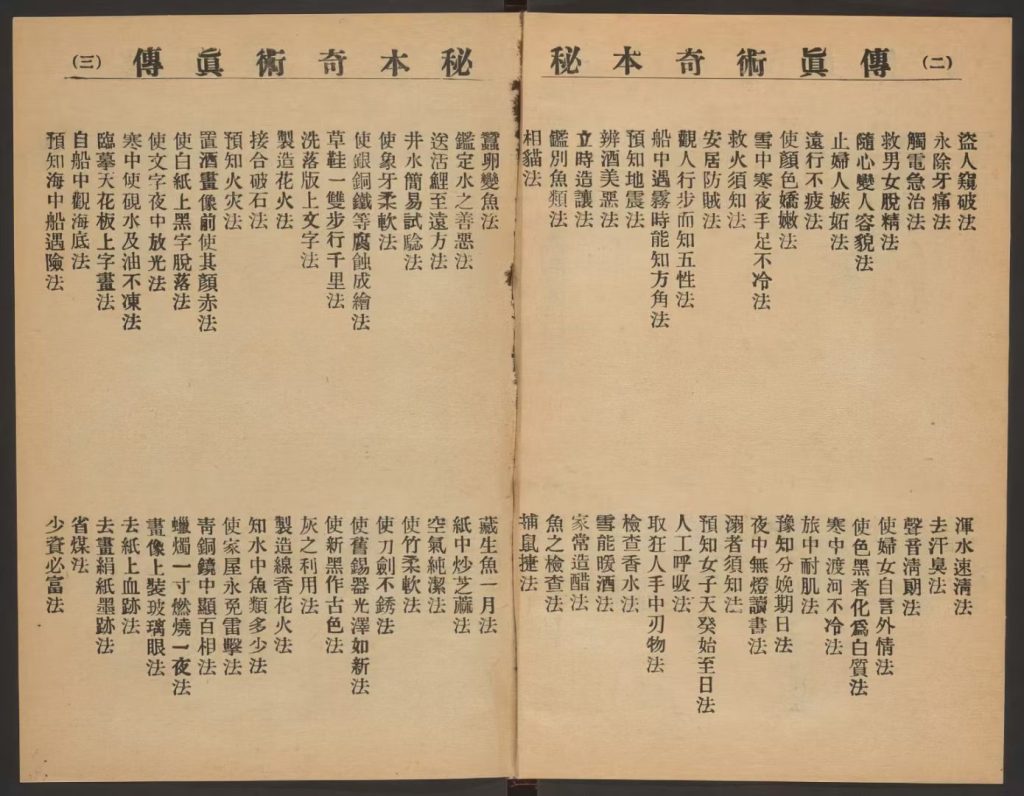 秘本奇術眞傳 (二)
盜人窺破法
永除牙痛法
觸電急治法
救男女脫精法
隨心變人容貌法
止婦人嫉妬法
遠行不疲法
使顏色嬌嫩法
雪中寒夜手足不冷法
救火須知法
安居防賊法
觀人行步而知五性法
船中遇霧時能知方角法
預知地震法
辨酒美惡法
立時造讓法
鑑別魚類法
相貓法
渾水速清法
去汗臭法
聲音清朗法
使婦女自言外情法
使色黑者化爲白質法
寒中渡河不冷法
旅中耐肌法
豫知分娩期日法
夜中無燈讀書法
溺者須知法
預知女子天癸始至日法
人工呼吸法
取狂人手中刃物法
檢查香水法
雪能暖酒法
家常造醋法
魚之檢查法
捕鼠捷法
秘本奇術眞傳 (三)
蠶卵變魚法
鑑定水之善惡法
送活鯉至遠方法
井水簡易試驗法
使象牙柔軟法
使銀銅鐵等腐蝕成繪法
草鞋一雙步行千里法
洗落版上文字法
製造花火法
接合破石法
預知火灾法
置酒畫像前使其顏赤法
使白紙上黑字脫落法
使文字夜中放光法
寒中使硯水及油不凍法
臨摹天花板上字畫法
自船中觀海底法
預知海中船遇險法
藏生魚一月法
紙中炒芝蔴法
空氣純潔法
使竹柔軟法
使刀劍不銹法
使舊錫器光澤如新法
使新黑作古色法
灰之利用法
製造線香花火法
知水中魚類多少法
使家屋永免雷擊法
靑銅鏡中顯百相法
蠟燭一寸燃燒一夜法
畫像上裝玻璃眼法
去紙上血跡法
去畫絹紙墨跡法
省煤法
少資必富法